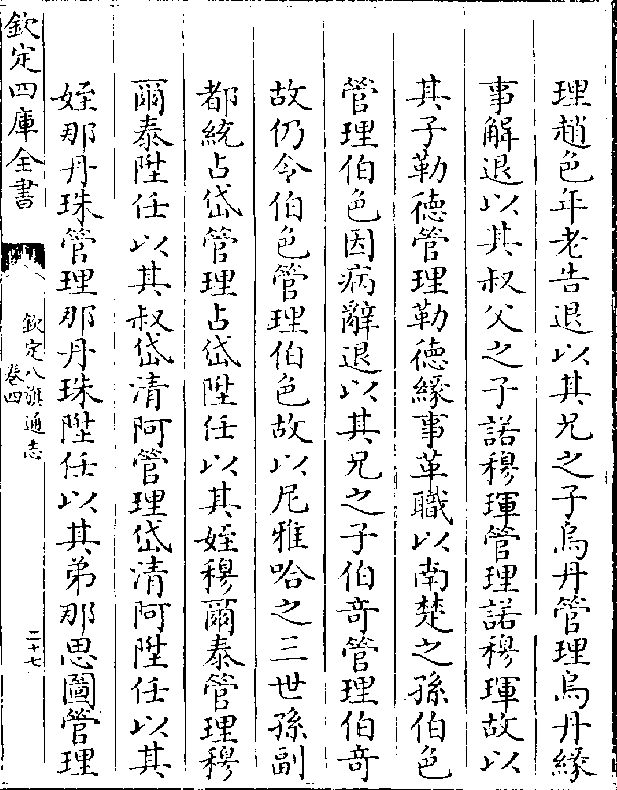 理趙色年老告退以其兄之子烏丹管理烏丹緣
事解退以其叔父之子諾穆琿管理諾穆琿故以
其子勒德管理勒德緣事革職以南楚之孫伯色
管理伯色因病辭退以其兄之子伯竒管理伯竒
故仍令伯色管理伯色故以尼雅哈之三世孫副
都統占岱管理占岱陞任以其姪穆爾泰管理穆
爾泰陞任以其叔岱清阿管理岱清阿陞任以其
姪那丹珠管理那丹珠陞任以其弟那思圖管理
欽定四庫全書
欽定八旗通志
卷四
二十七